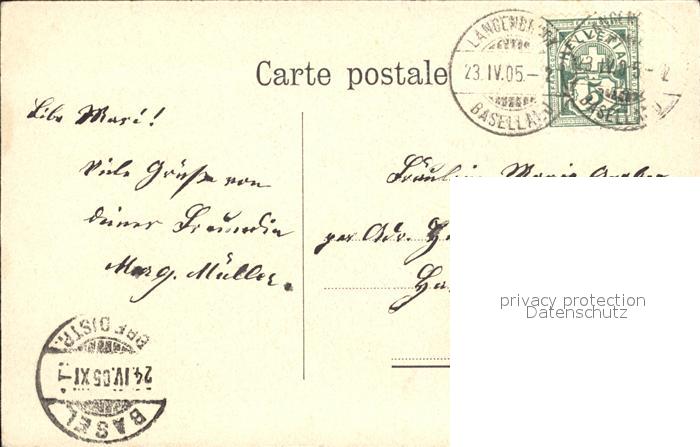 Carte postale
LANGENBRUCK
23.IV.05.-2
BASELLAND
HELVETIA
5
Liebe Marie!
Viele Grüsse von
deiner Freundin
Marg. Müller.
Fräulein Marie
per Adr.
BASEL
24.IV.05.XI
BRF.DISTR.
privacy protection
Datenschutz